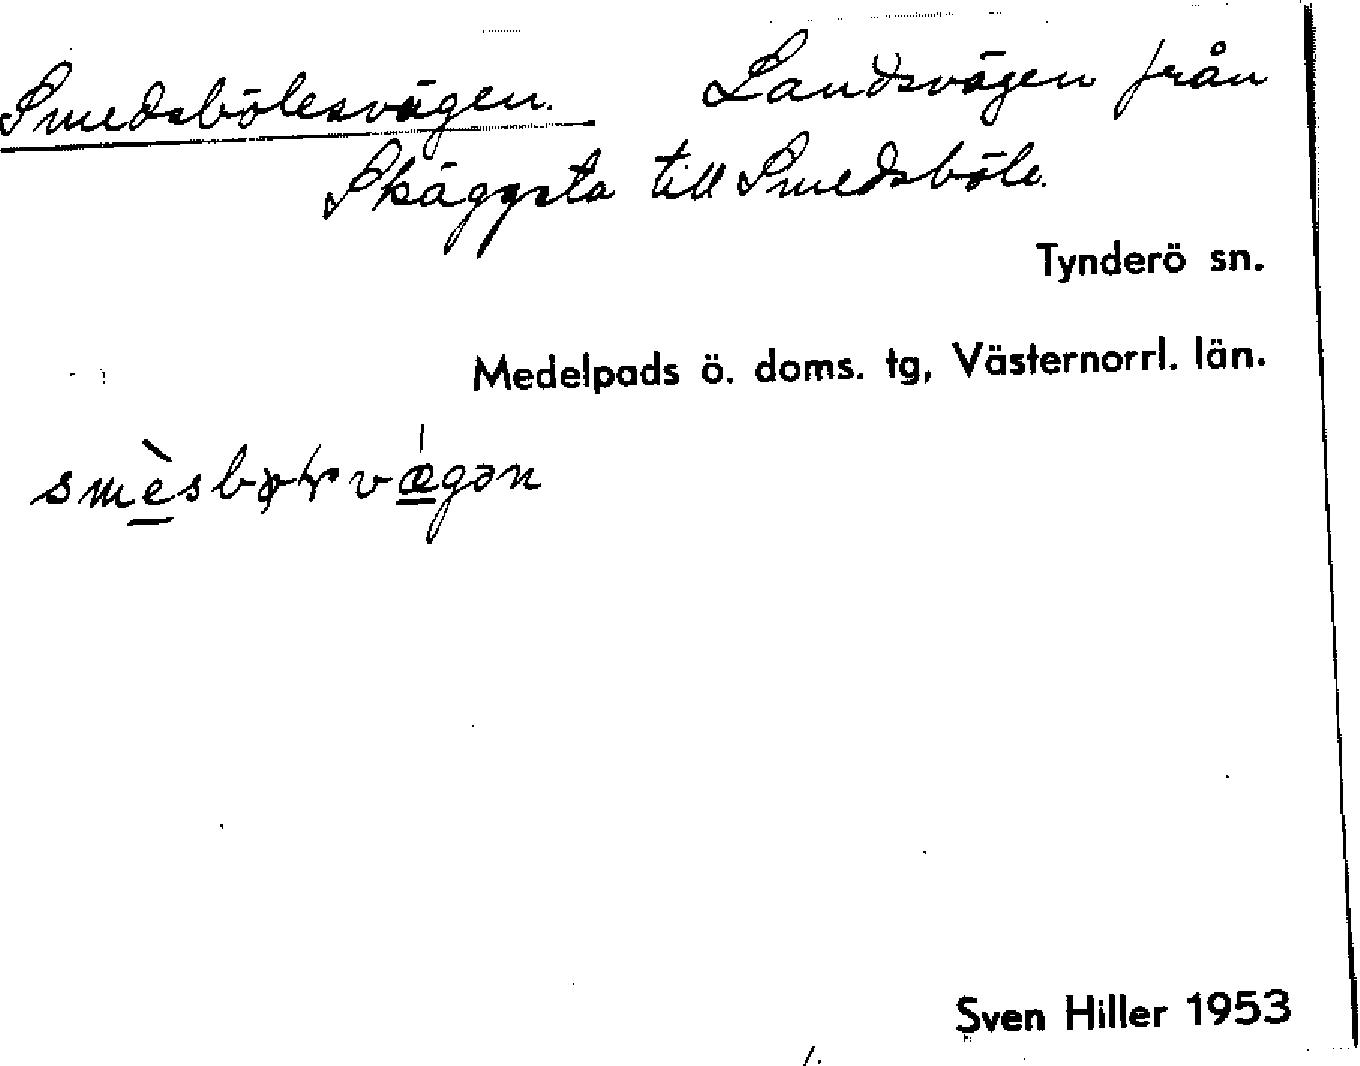 Smedsbölesvägen. Landsvägen från
Skäggsta till Smedsböle.
Tynderö sn.
Medelpads ö. doms. tg, Västernorrl. län.
Sven Hiller 1953